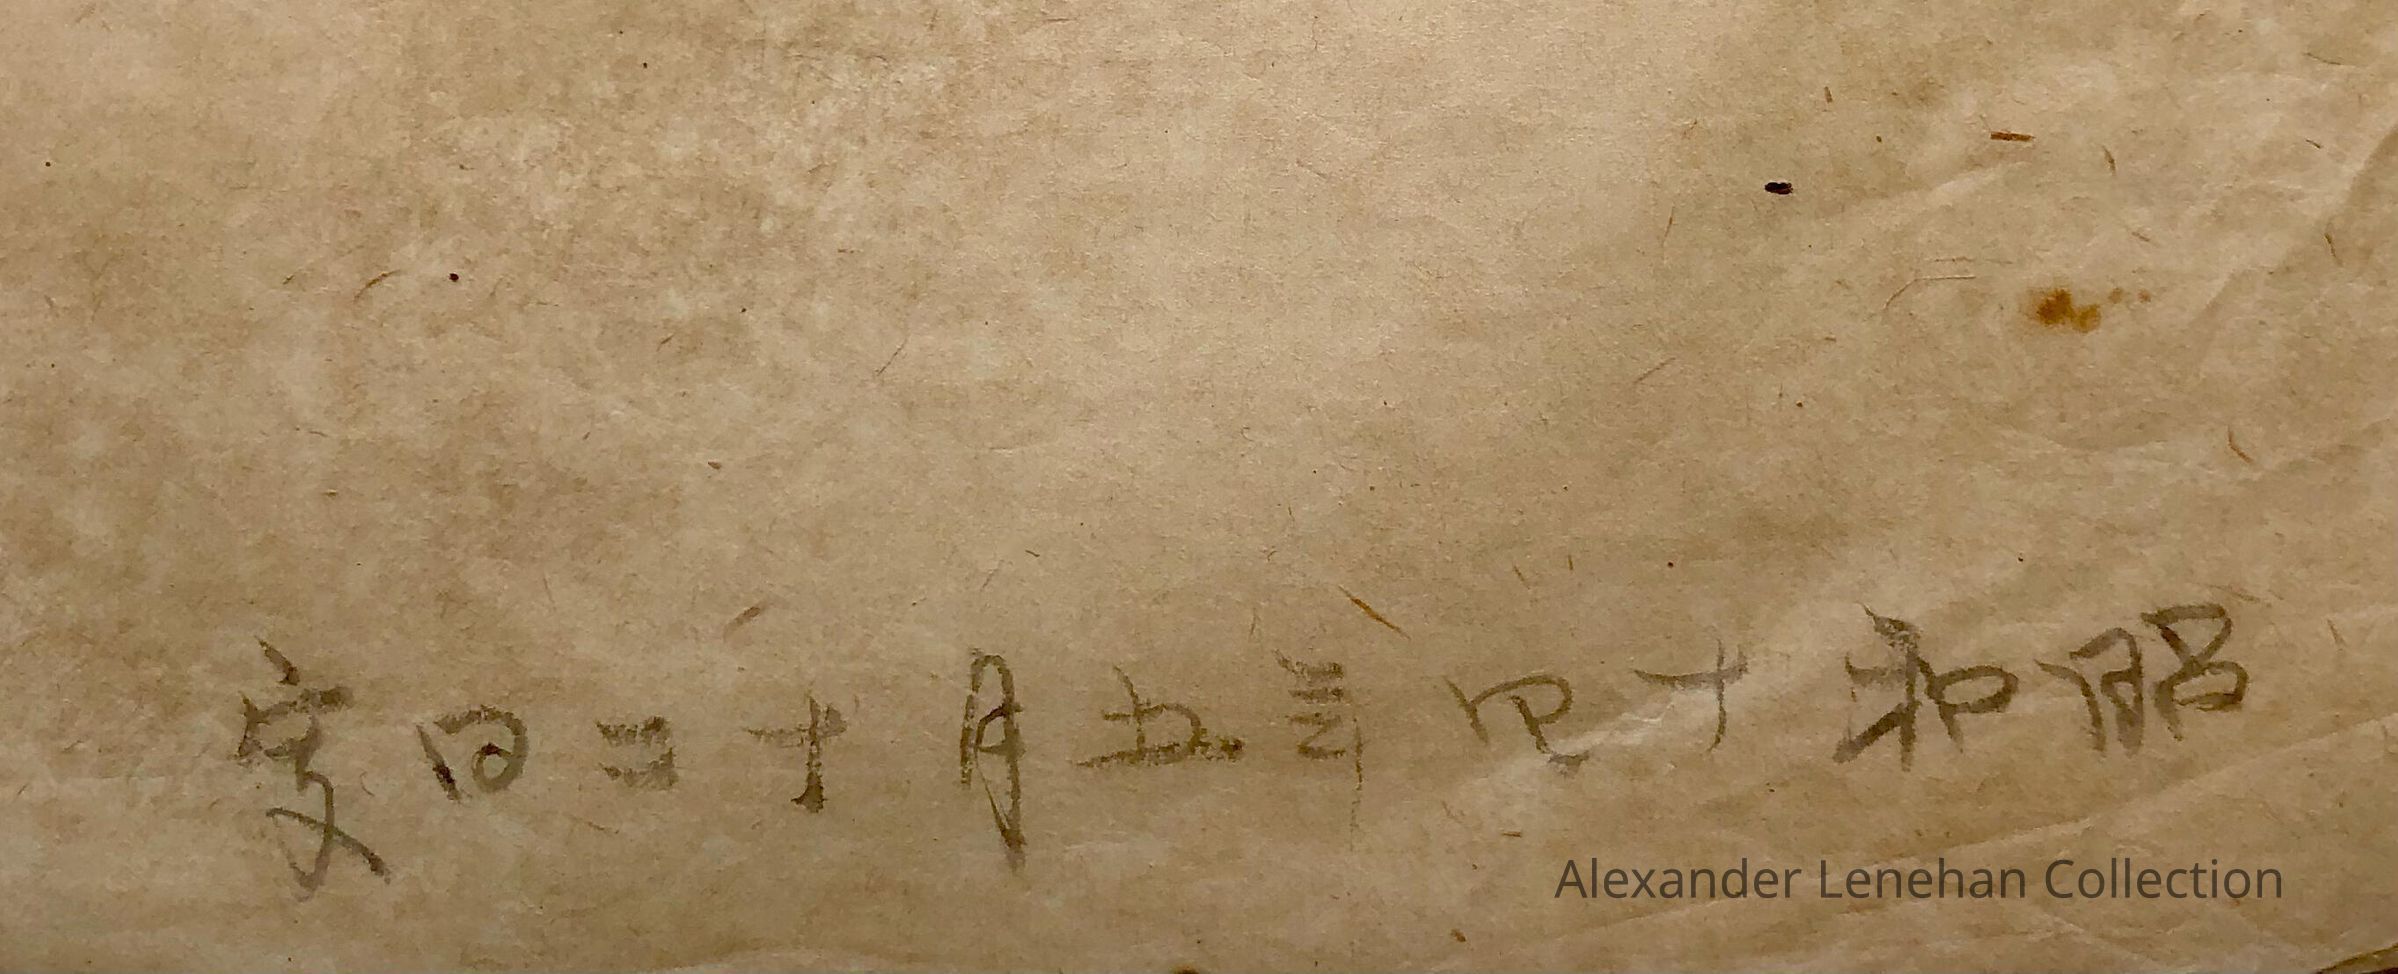 昭和十四年五月十二日
Alexander Lenehan Collection